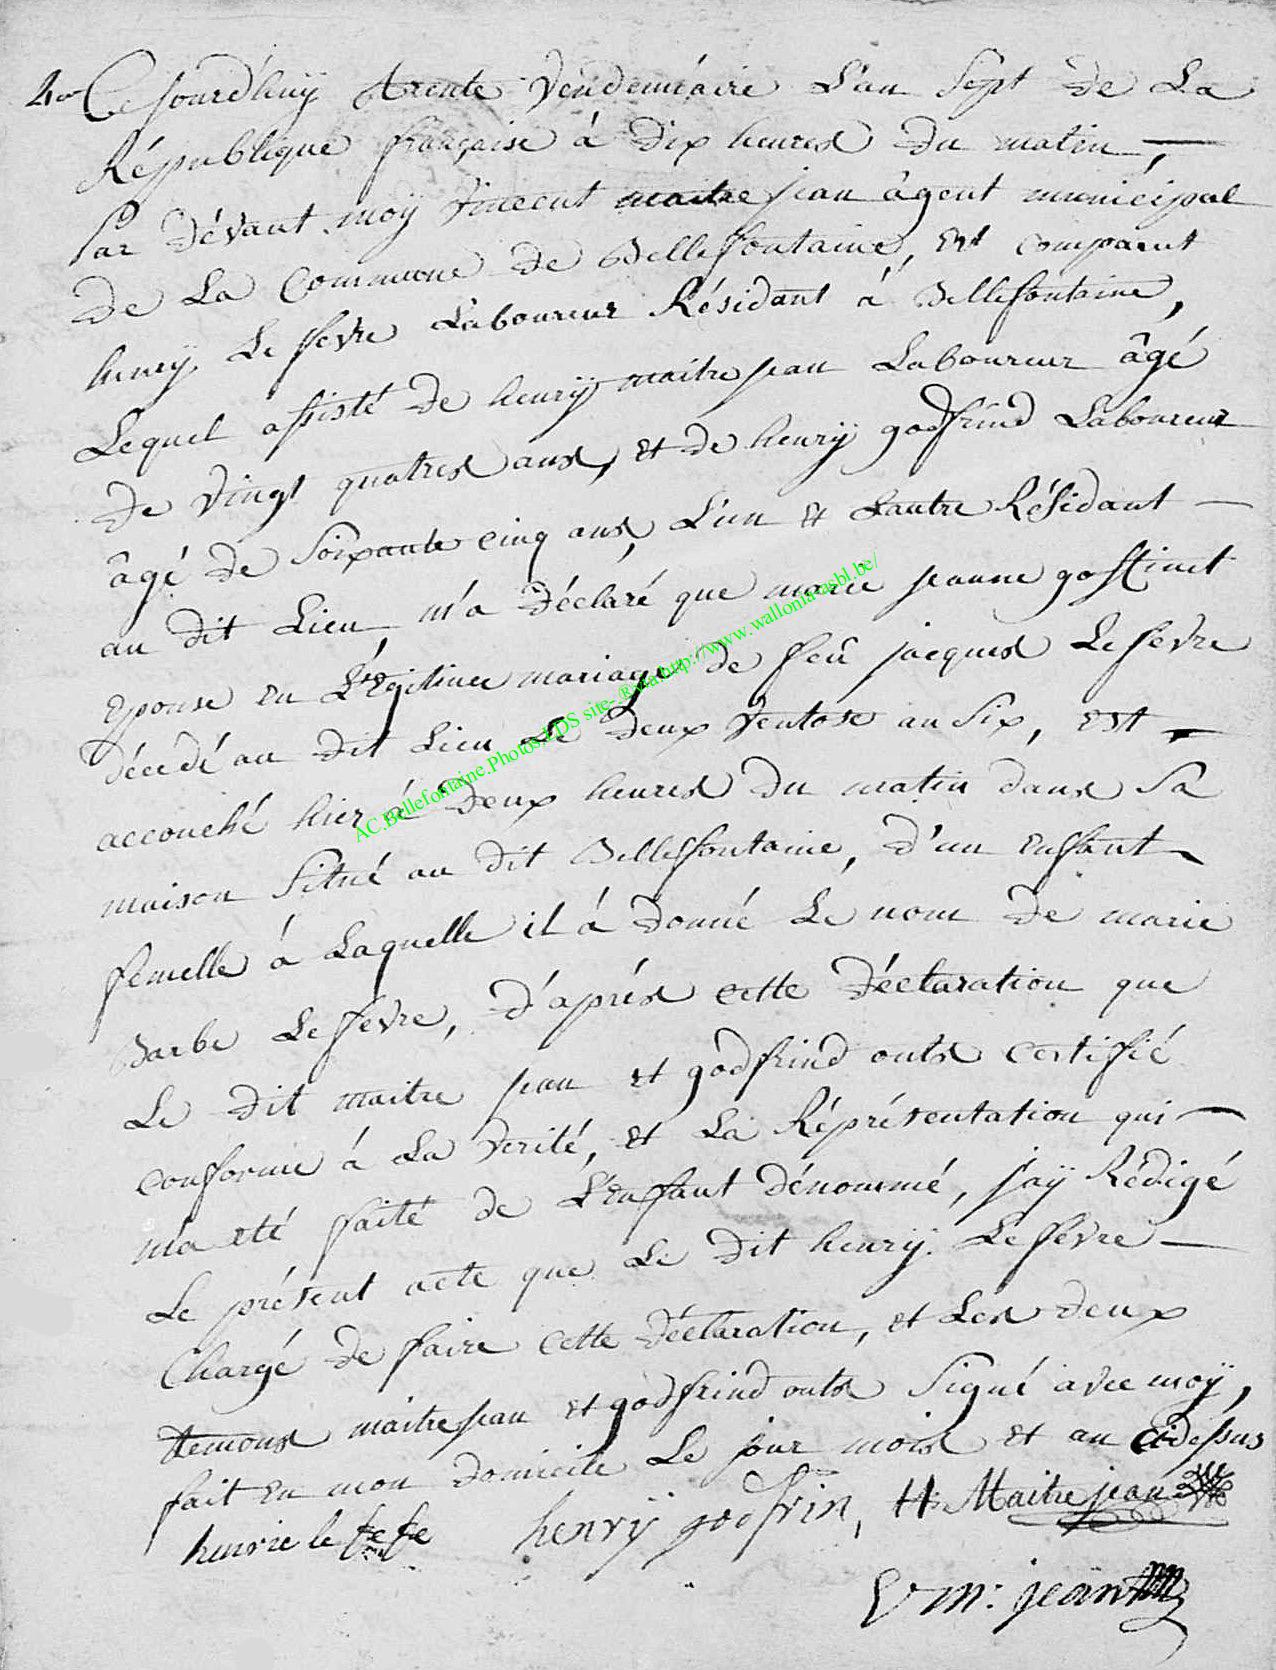 4e Cejourd'huÿ trente Vendemiaire L'an Sept de La
République française à dix heures du matin,
Par dévant moÿ Vincent maitrejean âgent municipal
de La Commune de Bellefontaine, Est comparut
henrÿ Le fevre Laboureur Résidant à Bellefontaine,
Lequel assisté de henrÿ maitrejean Laboureur âgé
de Vingt quatres ans, et de henrÿ godfrind Laboureur
âgé de Soixante cinq ans, L'un et Lautre Résidant
au dit Lieu, m'a Déclaré que marie jeanne gostinet
Epouse en Légitime mariage de feû jacques Le fevre
décédé au dit Lieu Le deux Ventose an Six, Est
accouché hier à deux heures du matin dans Sa
maison Situé au dit Bellefontaine, d'un Enfant
femelle à Laquelle il à donné Le nom de marie
Barbe Le fevre, d'après cette déclaration que
Le dit maitre jean et godfrind onts certifié
conforme à La Verité, et La Réprésentation qui
m'a eté faité de L'Enfant dénommé, j'aÿ Rédigé
Le présent acte que Le dit henrÿ Le fevre
Chargé de faire cette déclaration, et Les deux
temons maitrejean et godfrind onts Signé avec moÿ,
fait en mon domicile Le jour mois et an cidessus
henrie le fefe henrÿ godfrin, H. Maitrejean
V m: jean
AC.Bellefontaine.Photos.EDS site-®via:http://www.wallonia-asbl.be/